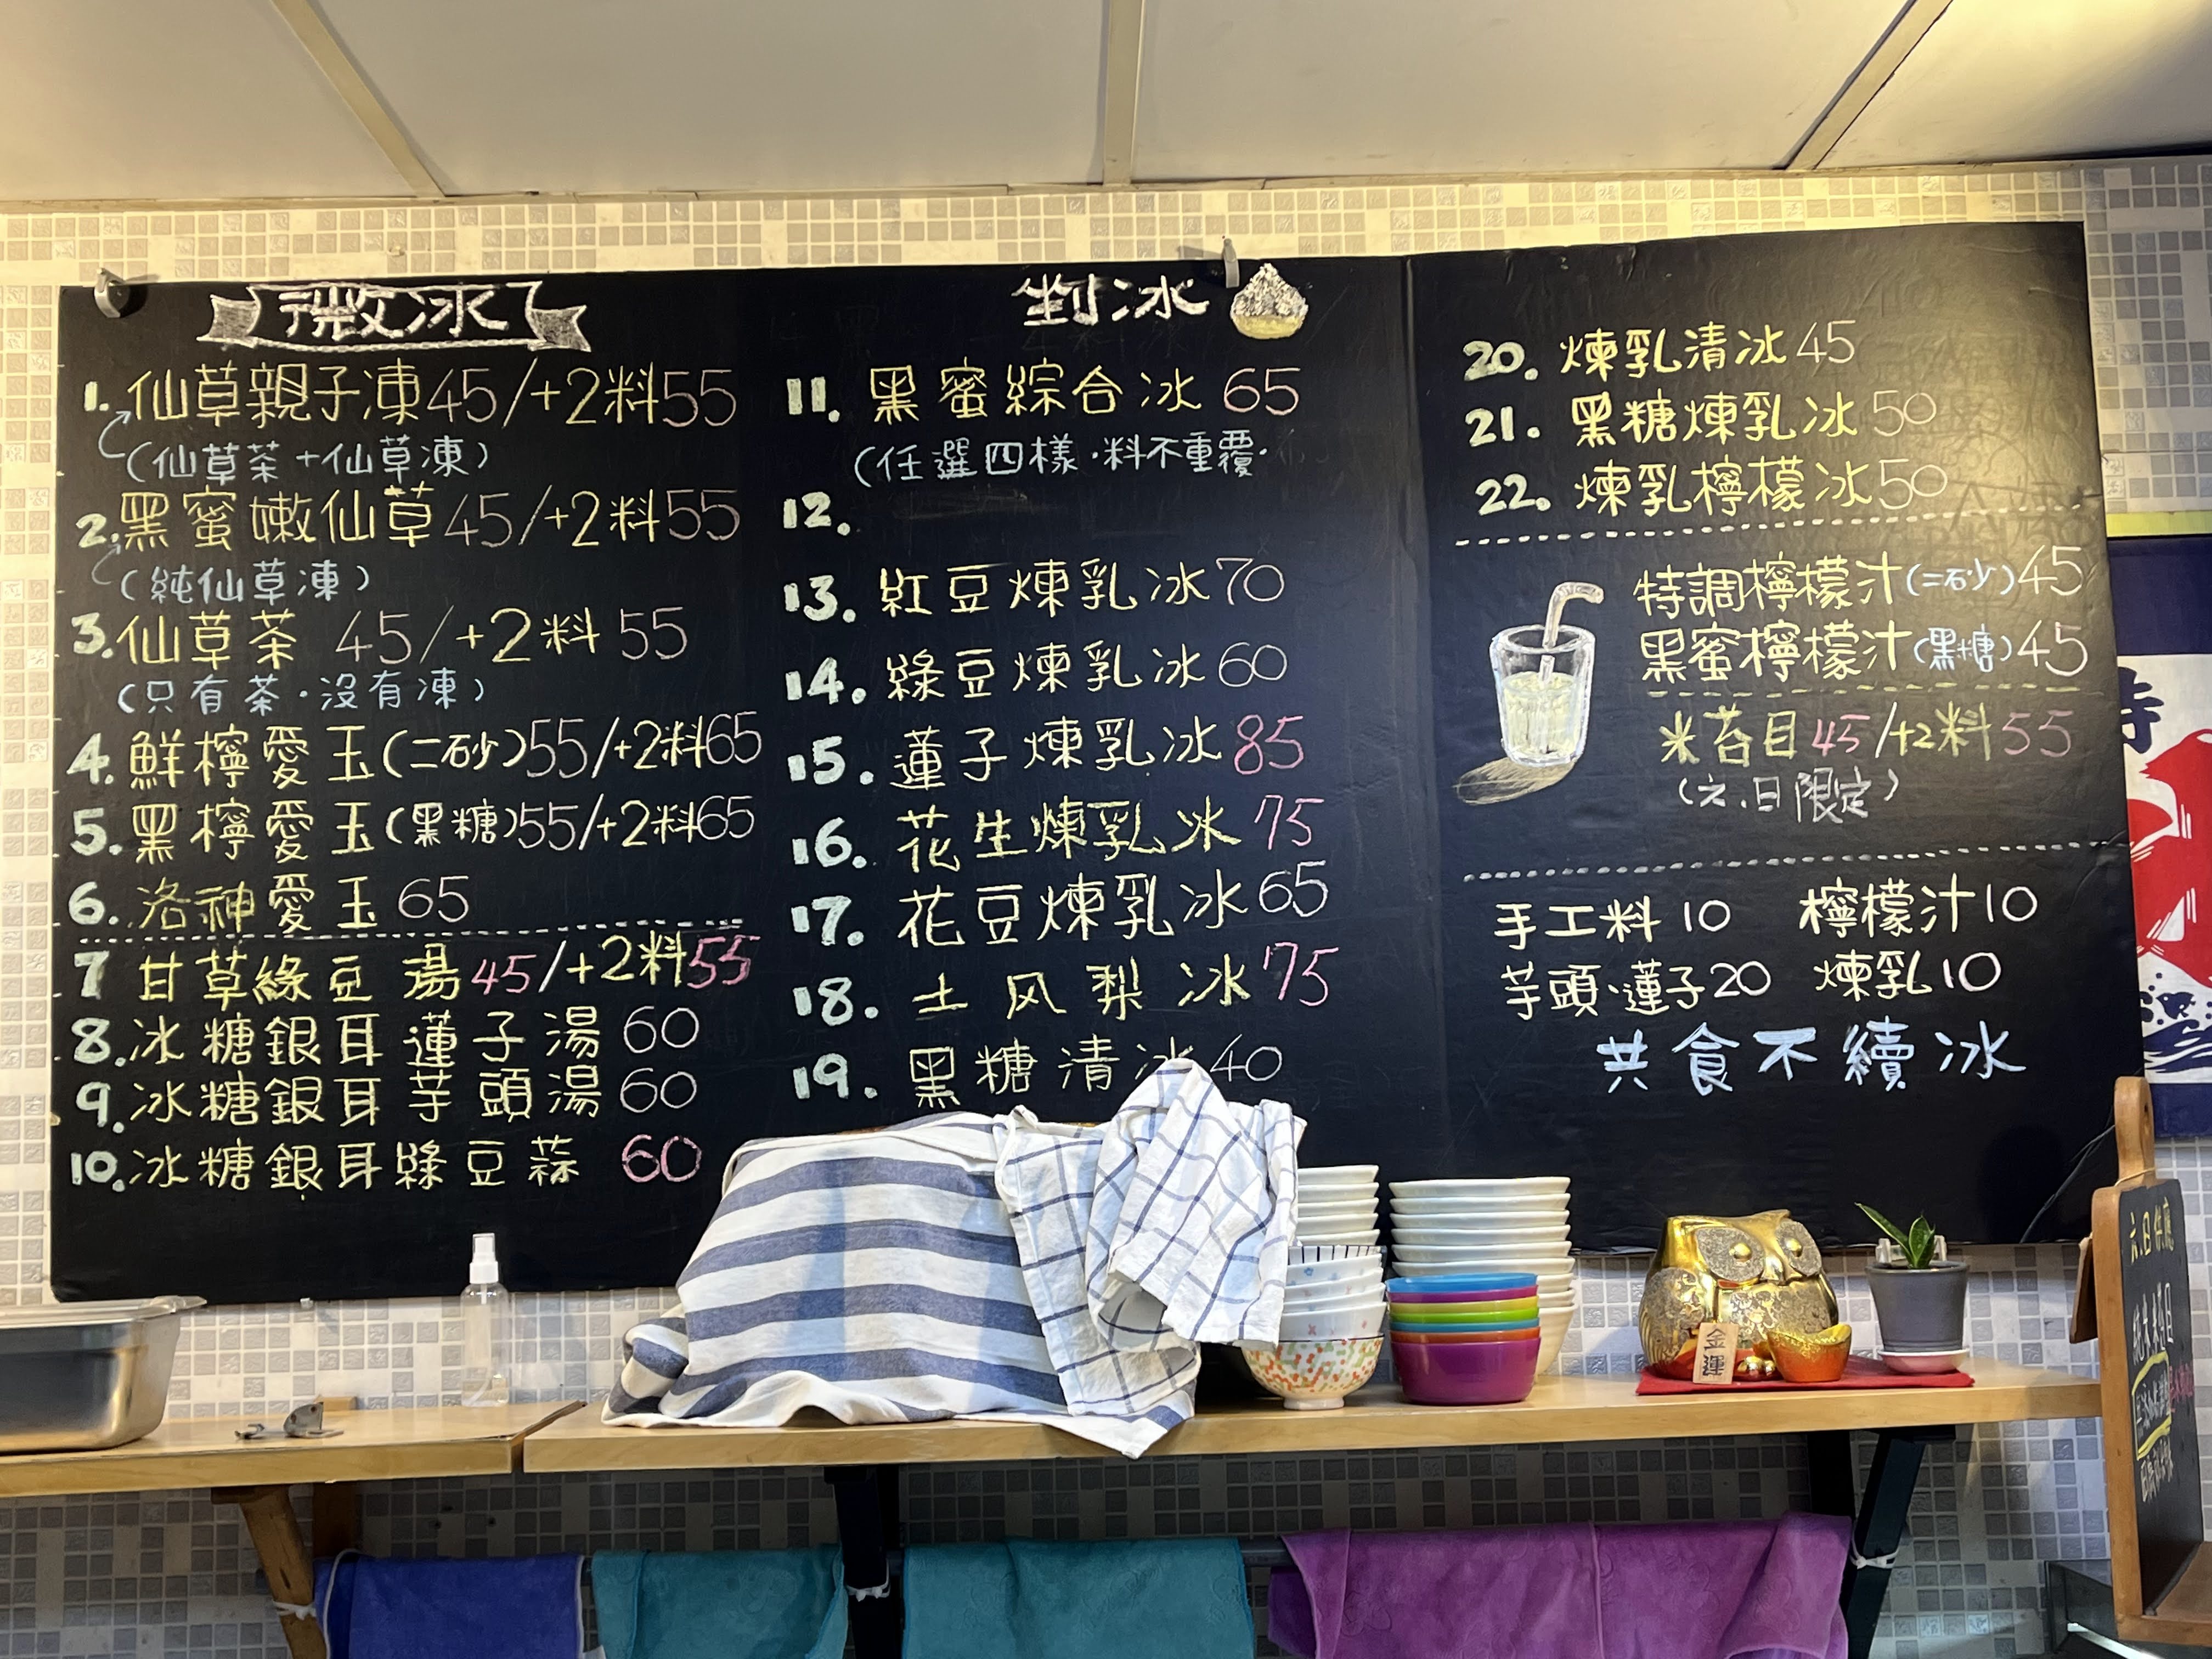 微冰
1. 仙草親子凍45/+2料55
(仙草茶+仙草凍)
2. 黑蜜嫩仙草45/+2料55
(純仙草凍)
3. 仙草茶 45/+2料 55
(只有茶·沒有凍)
4. 鮮檸愛玉(二砂)55/+2料65
5. 黑檸愛玉(黑糖)55/+2料65
6. 洛神愛玉 65
7 甘草綠豆湯45/+2料55
8. 冰糖銀耳蓮子湯 60
9. 冰糖銀耳芋頭湯 60
10. 冰糖銀耳綠豆蒜 60
剉冰
11. 黑蜜綜合冰 65
(任選四樣·料不重覆·
12.
13. 紅豆煉乳冰70
14. 綠豆煉乳冰60
15. 蓮子煉乳冰85
16. 花生煉乳冰75
17. 花豆煉乳冰65
18. 土风梨冰75
19. 黑糖清冰40
20. 煉乳清冰45
21. 黑糖煉乳冰50
22. 煉乳檸檬冰50
特調檸檬汁(二砂)45
黑蜜檸檬汁(黑糖)45
米苔目45/+2料55
(六.日限定)
手工料10 檸檬汁10
芋頭·蓮子20 煉乳10
共食不續冰
金運
六.日供應